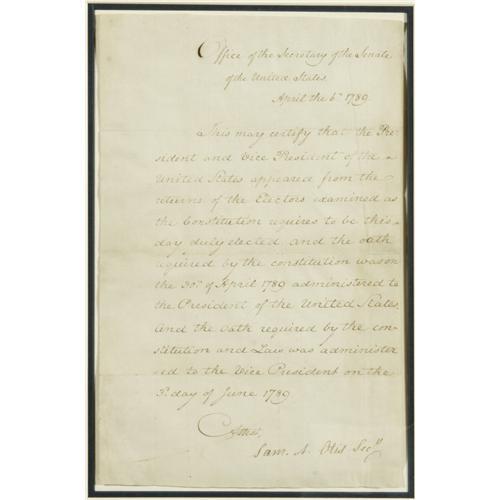 Office of the Secretary of the Senate
of the United States.
April the 6th 1789
This may certify that the Pre-
sident and Vice President of the
United States appeared from the
returns of the Electors examined as
the Constitution requires to be this
day duly elected and the oath
required by the constitution was on
the 30th of April 1789 administered to
the President of the United States.
And the Oath required by the con-
stitution and Law was administer
ed to the Vice President on the
3d day of June 1789
Attest,
Sam. A. Otis Secy